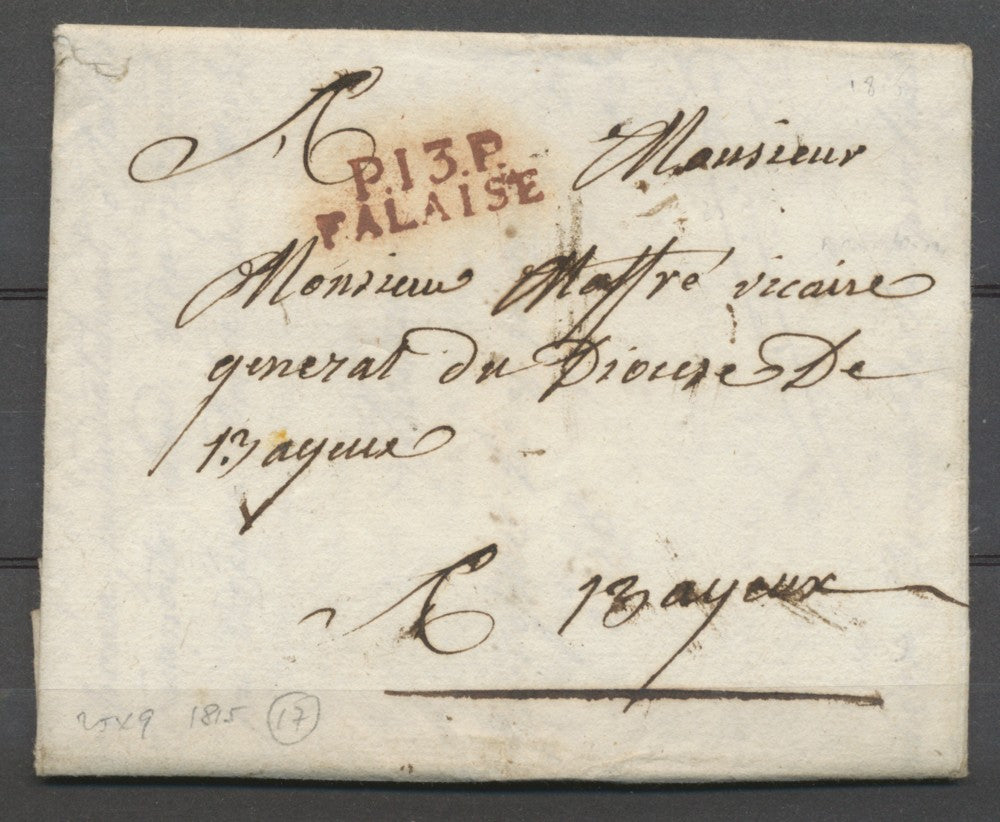 A Monsieur
P.13.P.
FALAISE
Monsieur Maffré vicaire
general du Diocese De
Bayeux
A Bayeux
25x9 1815 17